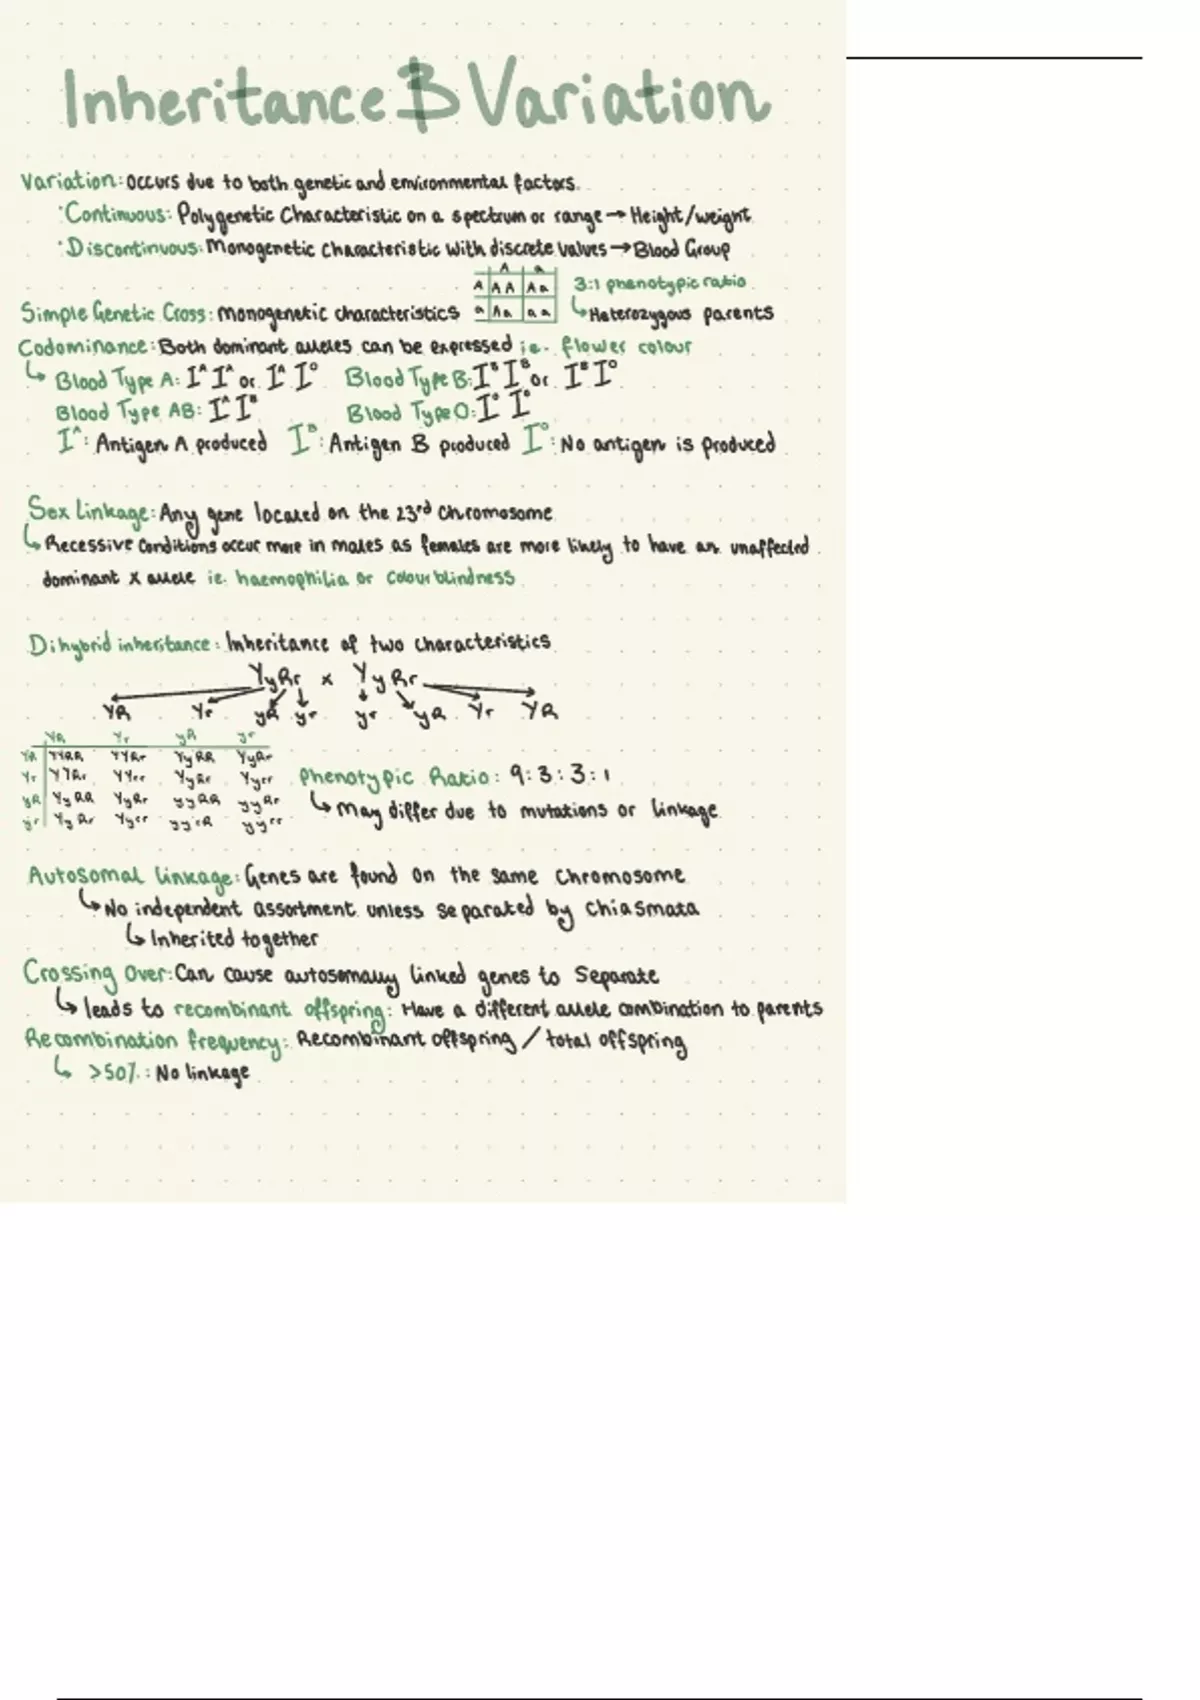 Inheritance & Variation
Variation: Occurs due to both genetic and environmental factors.
·Continuous: Polygenetic Characteristic on a spectrum or range → Height/weight
·Discontinuous: Monogenetic characteristic with discrete values → Blood Group
A a
A AA Aa
a Aa aa
3:1 phenotypic ratio
↳ Heterozygous parents
Simple Genetic Cross: Monogenetic characteristics
Codominance: Both dominant alleles can be expressed ie. flower colour
↳ Blood Type A: Iᴬ Iᴬ or Iᴬ Iᴼ Blood Type B: Iᴮ Iᴮ or Iᴮ Iᴼ
Blood Type AB: Iᴬ Iᴮ Blood Type O: Iᴼ Iᴼ
Iᴬ: Antigen A produced Iᴮ: Antigen B produced Iᴼ: No antigen is produced
Sex Linkage: Any gene located on the 23rd chromosome
↳ Recessive conditions occur more in males as females are more likely to have an unaffected
dominant x allele ie. haemophilia or colourblindness
Dihybrid inheritance: Inheritance of two characteristics
YyRr x YyRr
YR Yr yR yr yr yR Yr YR
YR Yr yR yr
YR YYRR YYRr YyRR YyRr
Yr YYRr YYrr YyRr Yyrr
yR YyRR YyRr yyRR yyRr
yr YyRr Yyrr yyrR yyrr
Phenotypic Ratio: 9:3:3:1
↳ May differ due to mutations or linkage
Autosomal linkage: Genes are found on the same chromosome
↳ No independent assortment unless separated by chiasmata
↳ Inherited together
Crossing Over: Can cause autosomally linked genes to separate
↳ leads to recombinant offspring: Have a different allele combination to parents
Recombination frequency: Recombinant offspring / total offspring
↳ >50%: No linkage